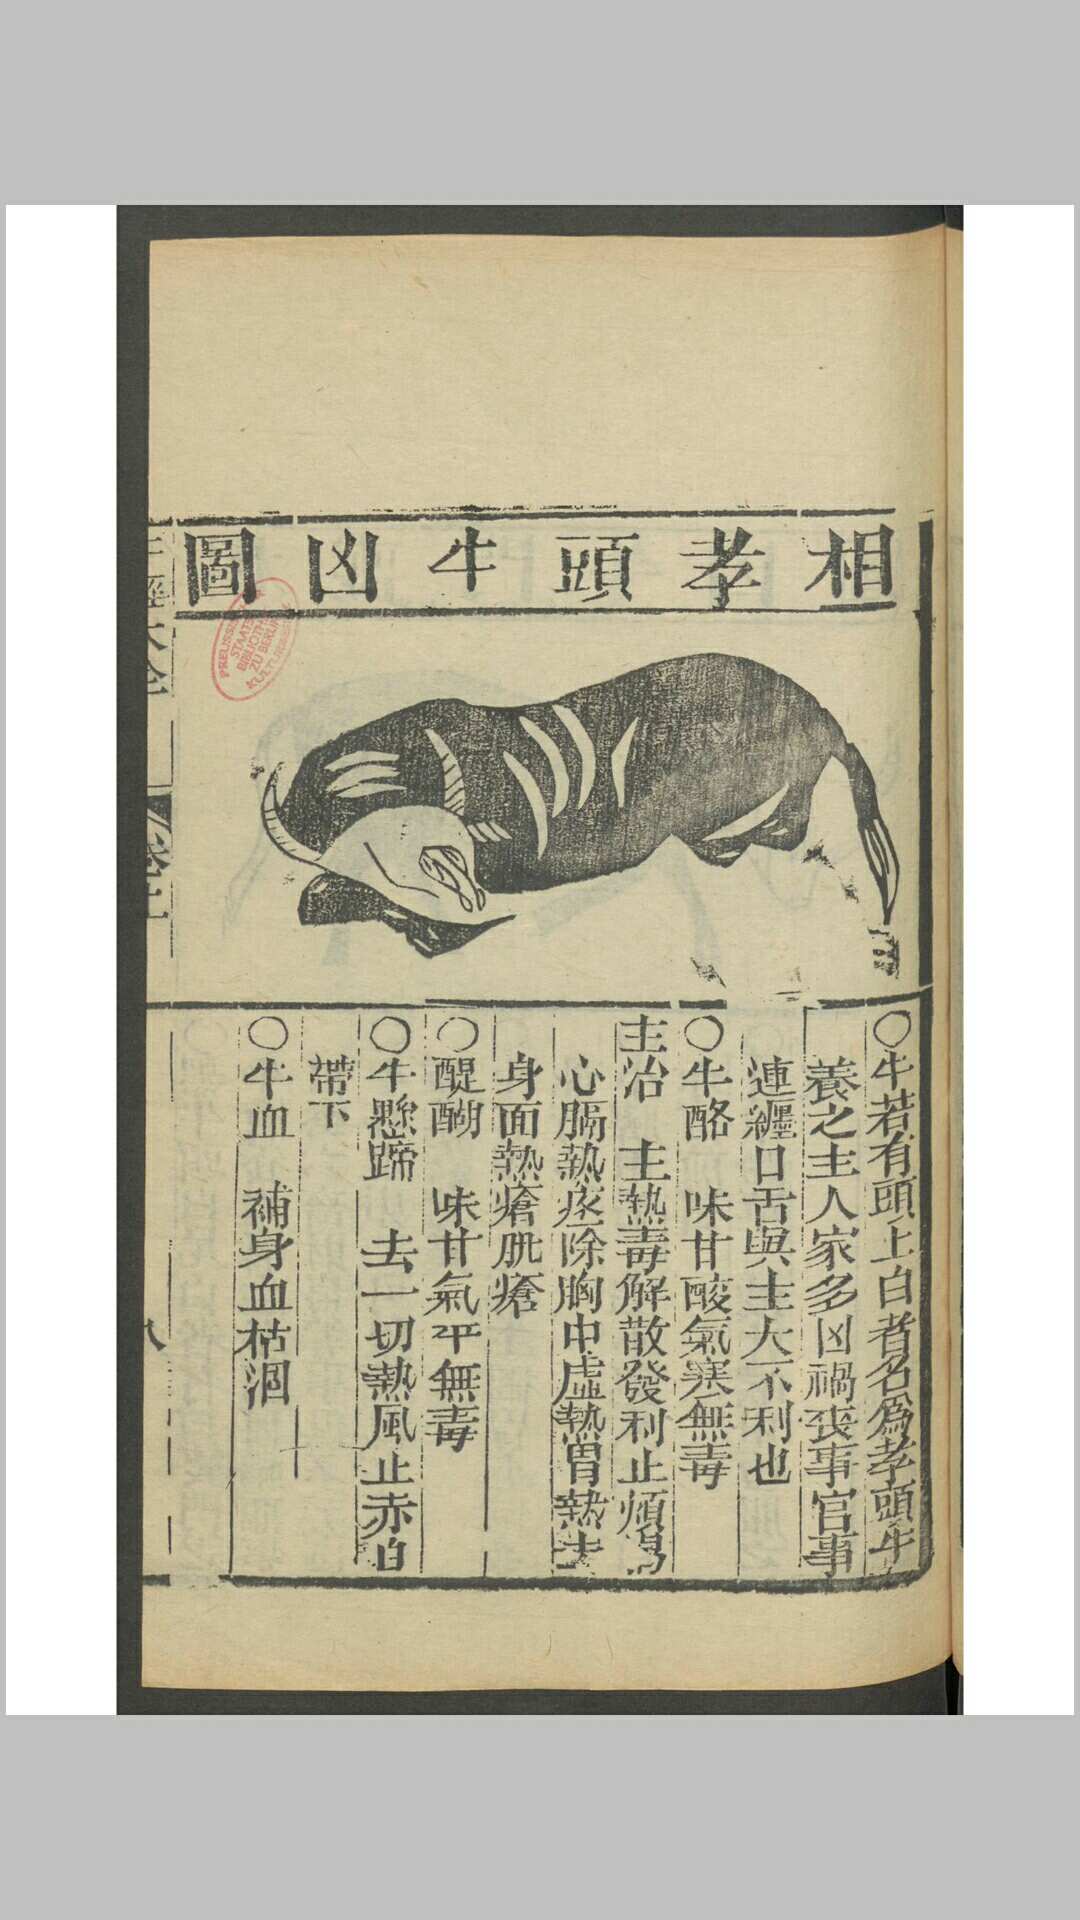 相孝頭牛凶圖
○牛若有頭上白者名爲孝頭牛
養之主人家多凶禍喪事官事
連纏口舌與主大不利也
○牛酪　味甘酸氣寒無毒
主治　主熱毒解散發利止煩渴
心膈熱疼除胸中虛熱胃熱去
身面熱瘡肌瘡
○醍醐　味甘氣平無毒
○牛懸蹄　去一切熱風止赤白
帶下
○牛血　補身血枯涸
大全
八
PREUSSISCHE
STAATS
BIBLIOTHEK
ZU BERLIN